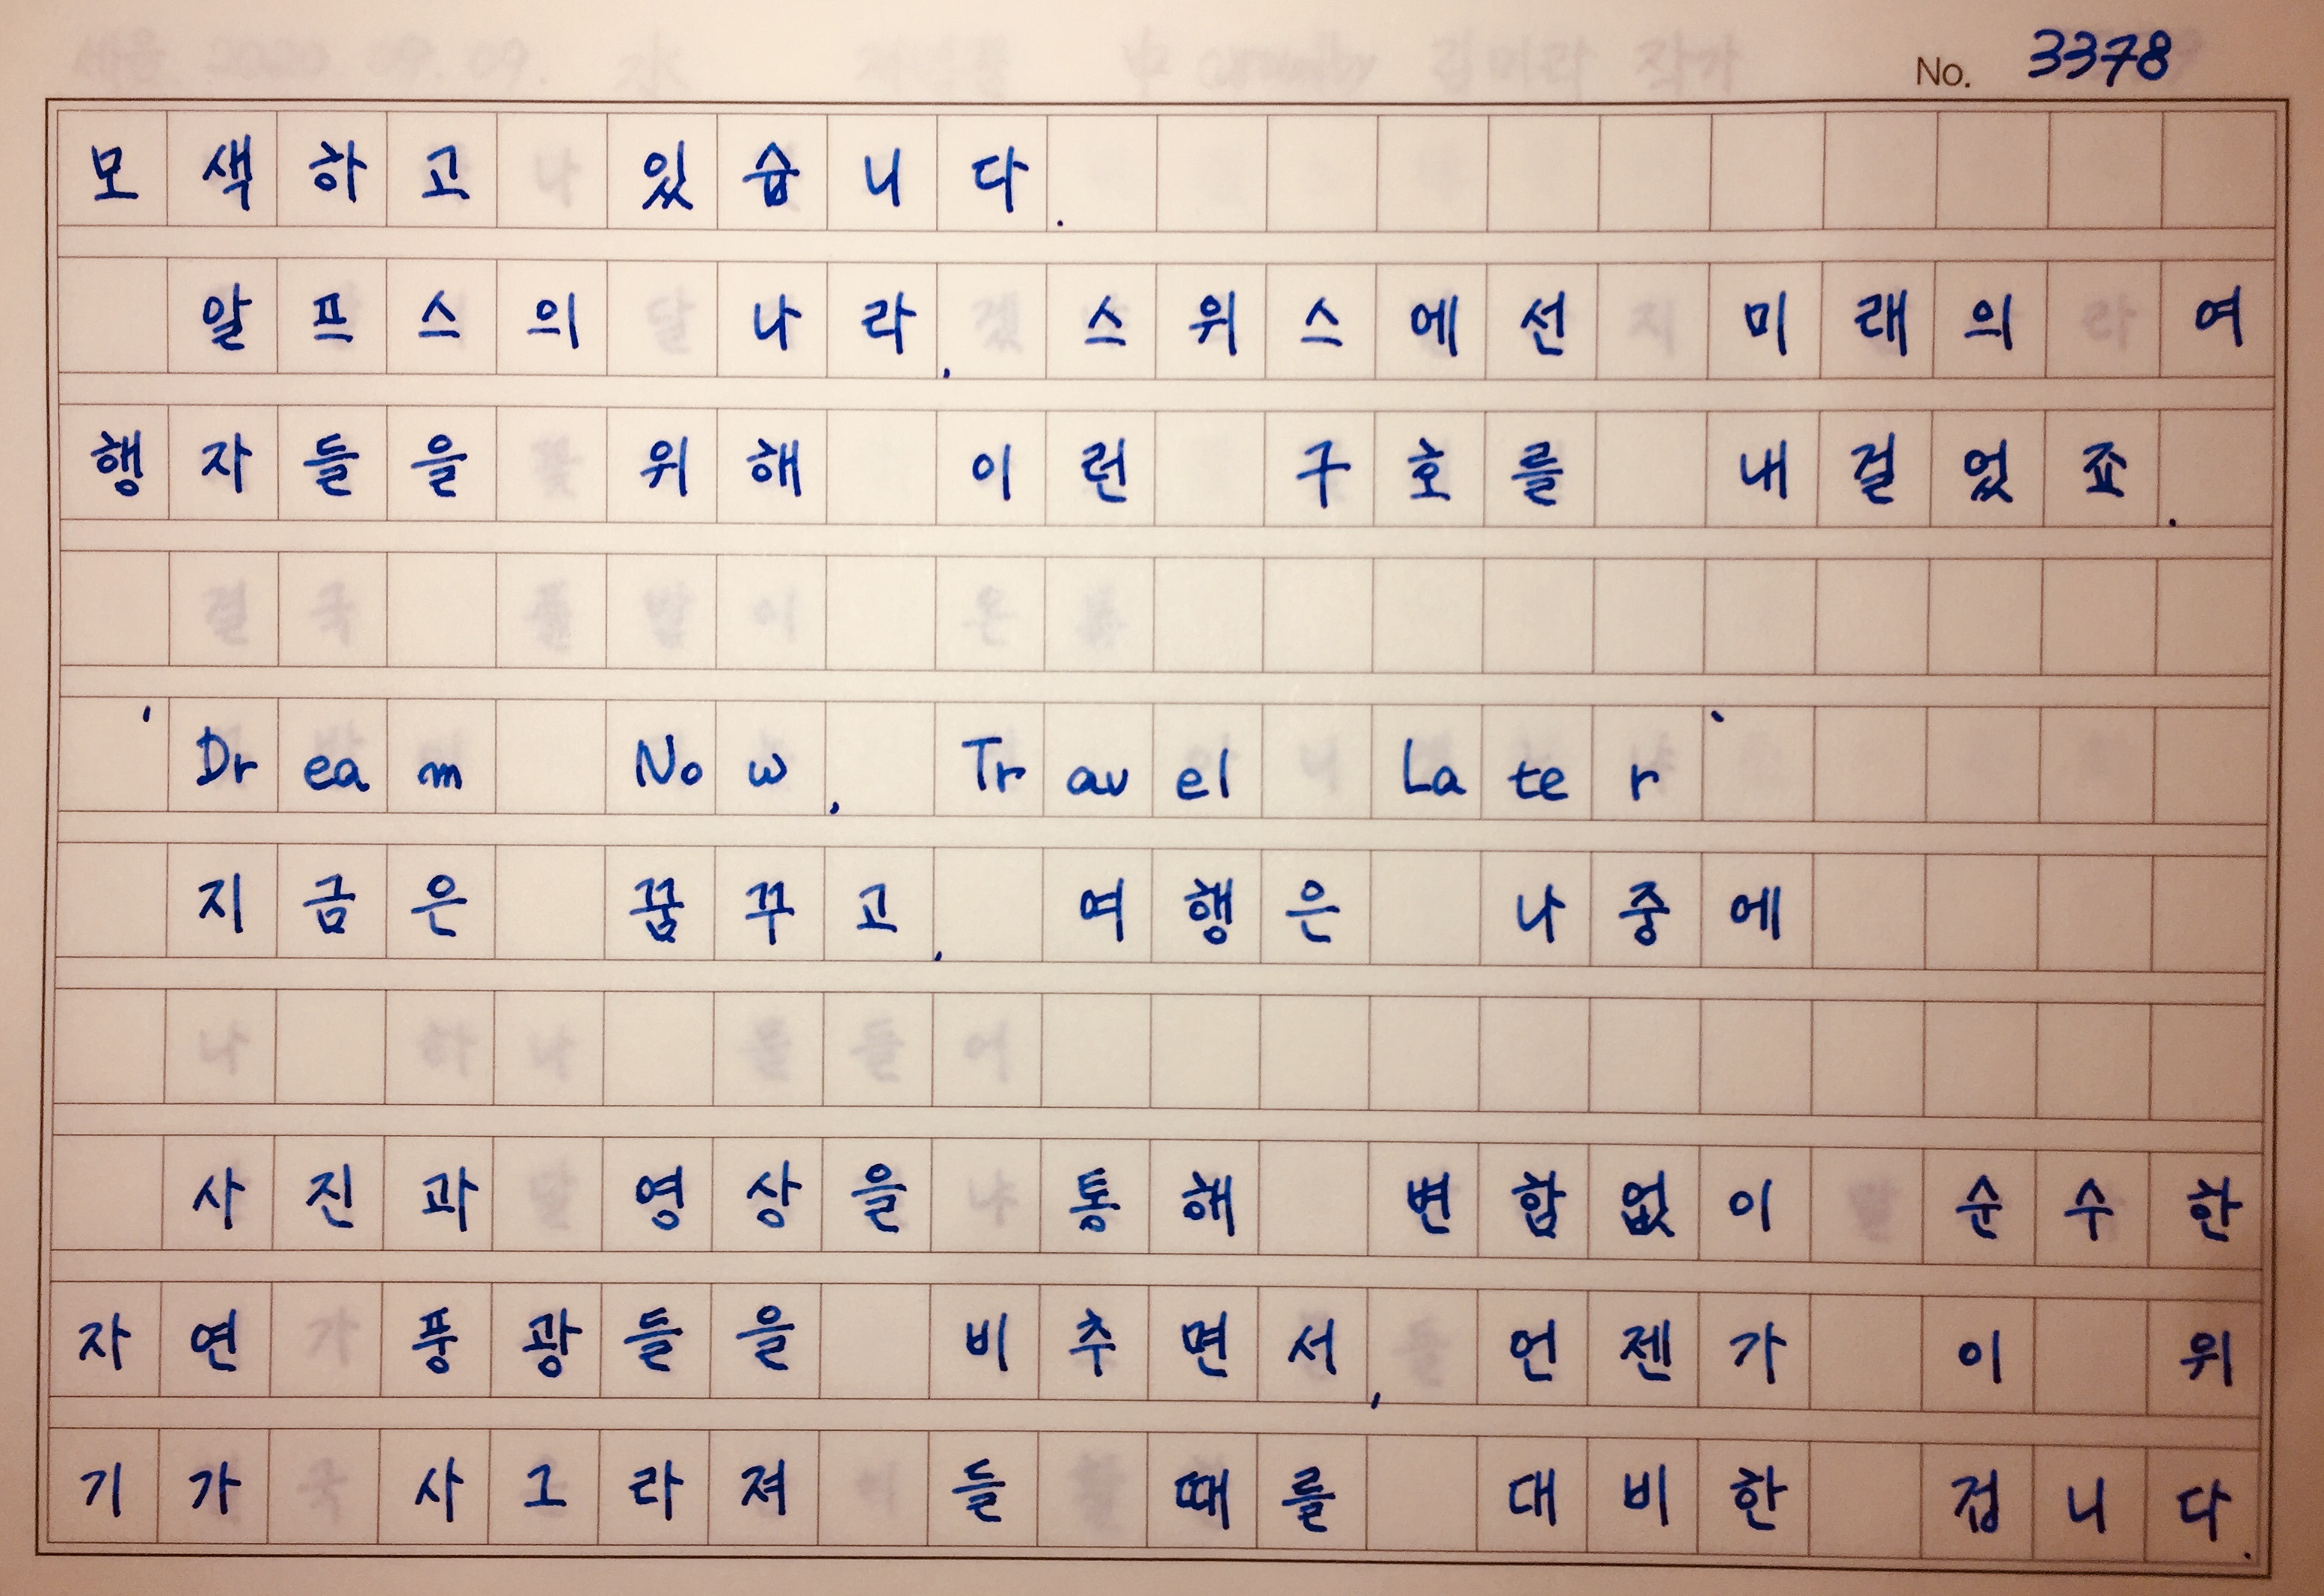 No. 3378
모색하고 있습니다.
알프스의 나라, 스위스에선 미래의 여
행자들을 위해 이런 구호를 내걸었죠.
'Dream Now, Travel Later'
지금은 꿈꾸고, 여행은 나중에
사진과 영상을 통해 변함없이 순수한
자연 풍광들을 비추면서, 언젠가 이 위
기가 사그라져 들 때를 대비한 겁니다.